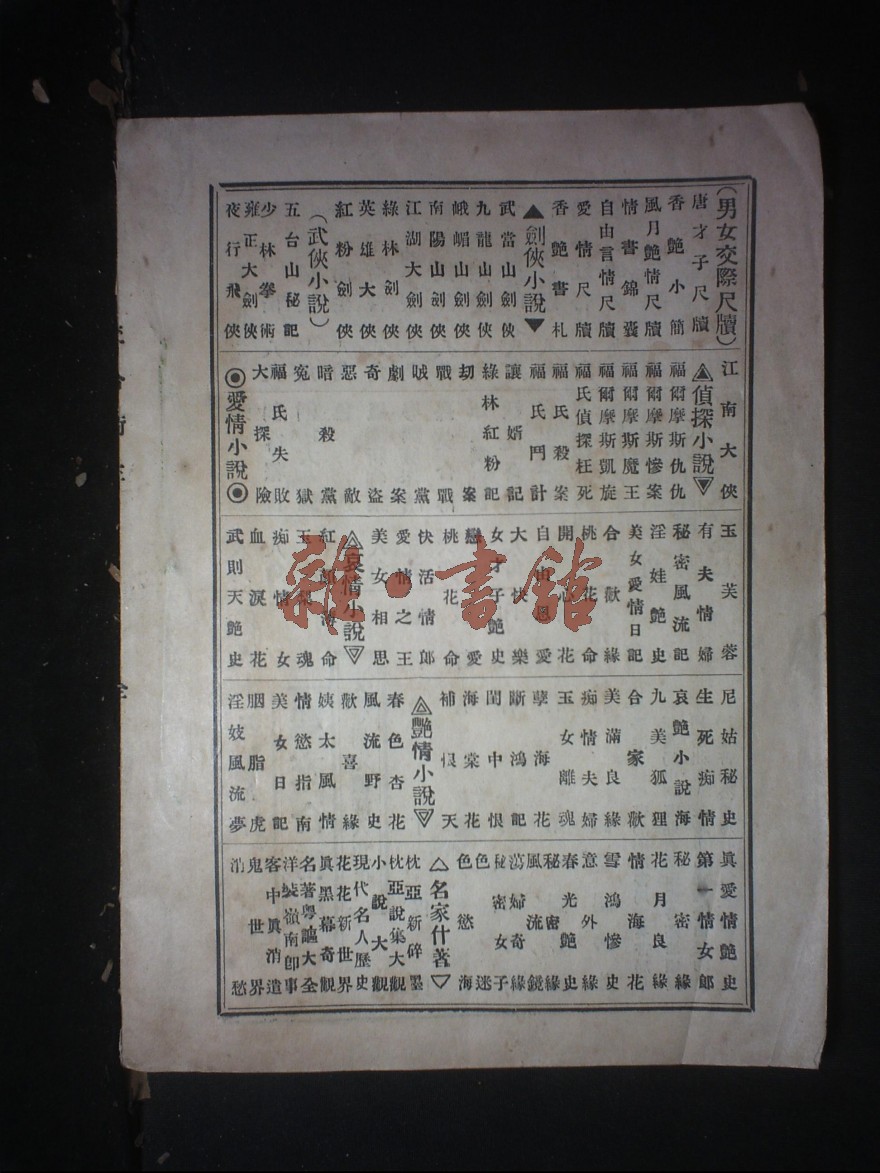 (男女交際尺牘)
唐才子尺牘
香艷小簡
風月艷情尺牘
情書錦囊
自由言情尺牘
愛情尺牘
香艷書札
▲劍俠小說▼
武當山劍俠
九龍山劍俠
峨嵋山劍俠
南陽山劍俠
江湖大劍俠
綠林劍俠
英雄大俠
紅粉劍俠
(武俠小說)
五台山秘記
少林拳術
雍正大劍俠
夜行飛俠
江南大俠
偵探小說
福爾摩斯仇仇
福爾摩斯慘案
福爾摩斯魔王
福爾摩斯凱旋
福氏偵探枉死
福氏殺案
福氏鬥計
讓婿記
綠林紅粉記
劫案
戰戰
賊黨
劇案
奇盜
惡敵
暗殺黨
冤獄
福氏失敗
大探險
◉愛情小說◉
玉芙蓉
有夫情婦
秘密風流記
淫娃艷史
美女愛情日記
合歡緣
桃花命
開心花
自由恩愛
大快樂
女才子艷史
戀愛
桃花命
快活情郎
愛情之王
美女相思
哀情小說
紅顏薄命
玉梨魂
痴情女
血淚花
武則天艷史
尼姑秘史
生死痴情
哀艷小說海
九美狐狸
合家歡
美滿良緣
痴情夫婦
玉女離魂
孽海花
斷鴻記
閨中恨
海棠花
補恨天
艷情小說
春色杏花
風流野史
歡喜緣
姨太風情
情慾指南
美女日記
胭脂虎
淫妓風流夢
眞愛情艷史
第一情女郎
秘密緣
花月良緣
情海花
雪鴻慘史
意外緣
春光艷史
秘密緣
風流鏡
蕩婦奇緣
秘密女子
色迷
色慾海
△名家什著▽
枕亞新碎墨
枕亞說集大觀
小說大觀
現代名人歷史
花花新世界
眞黑幕奇觀
名著粵謳大全
洋裝嶺南卽事
客中眞消遣
鬼世界
消愁
雜·書館